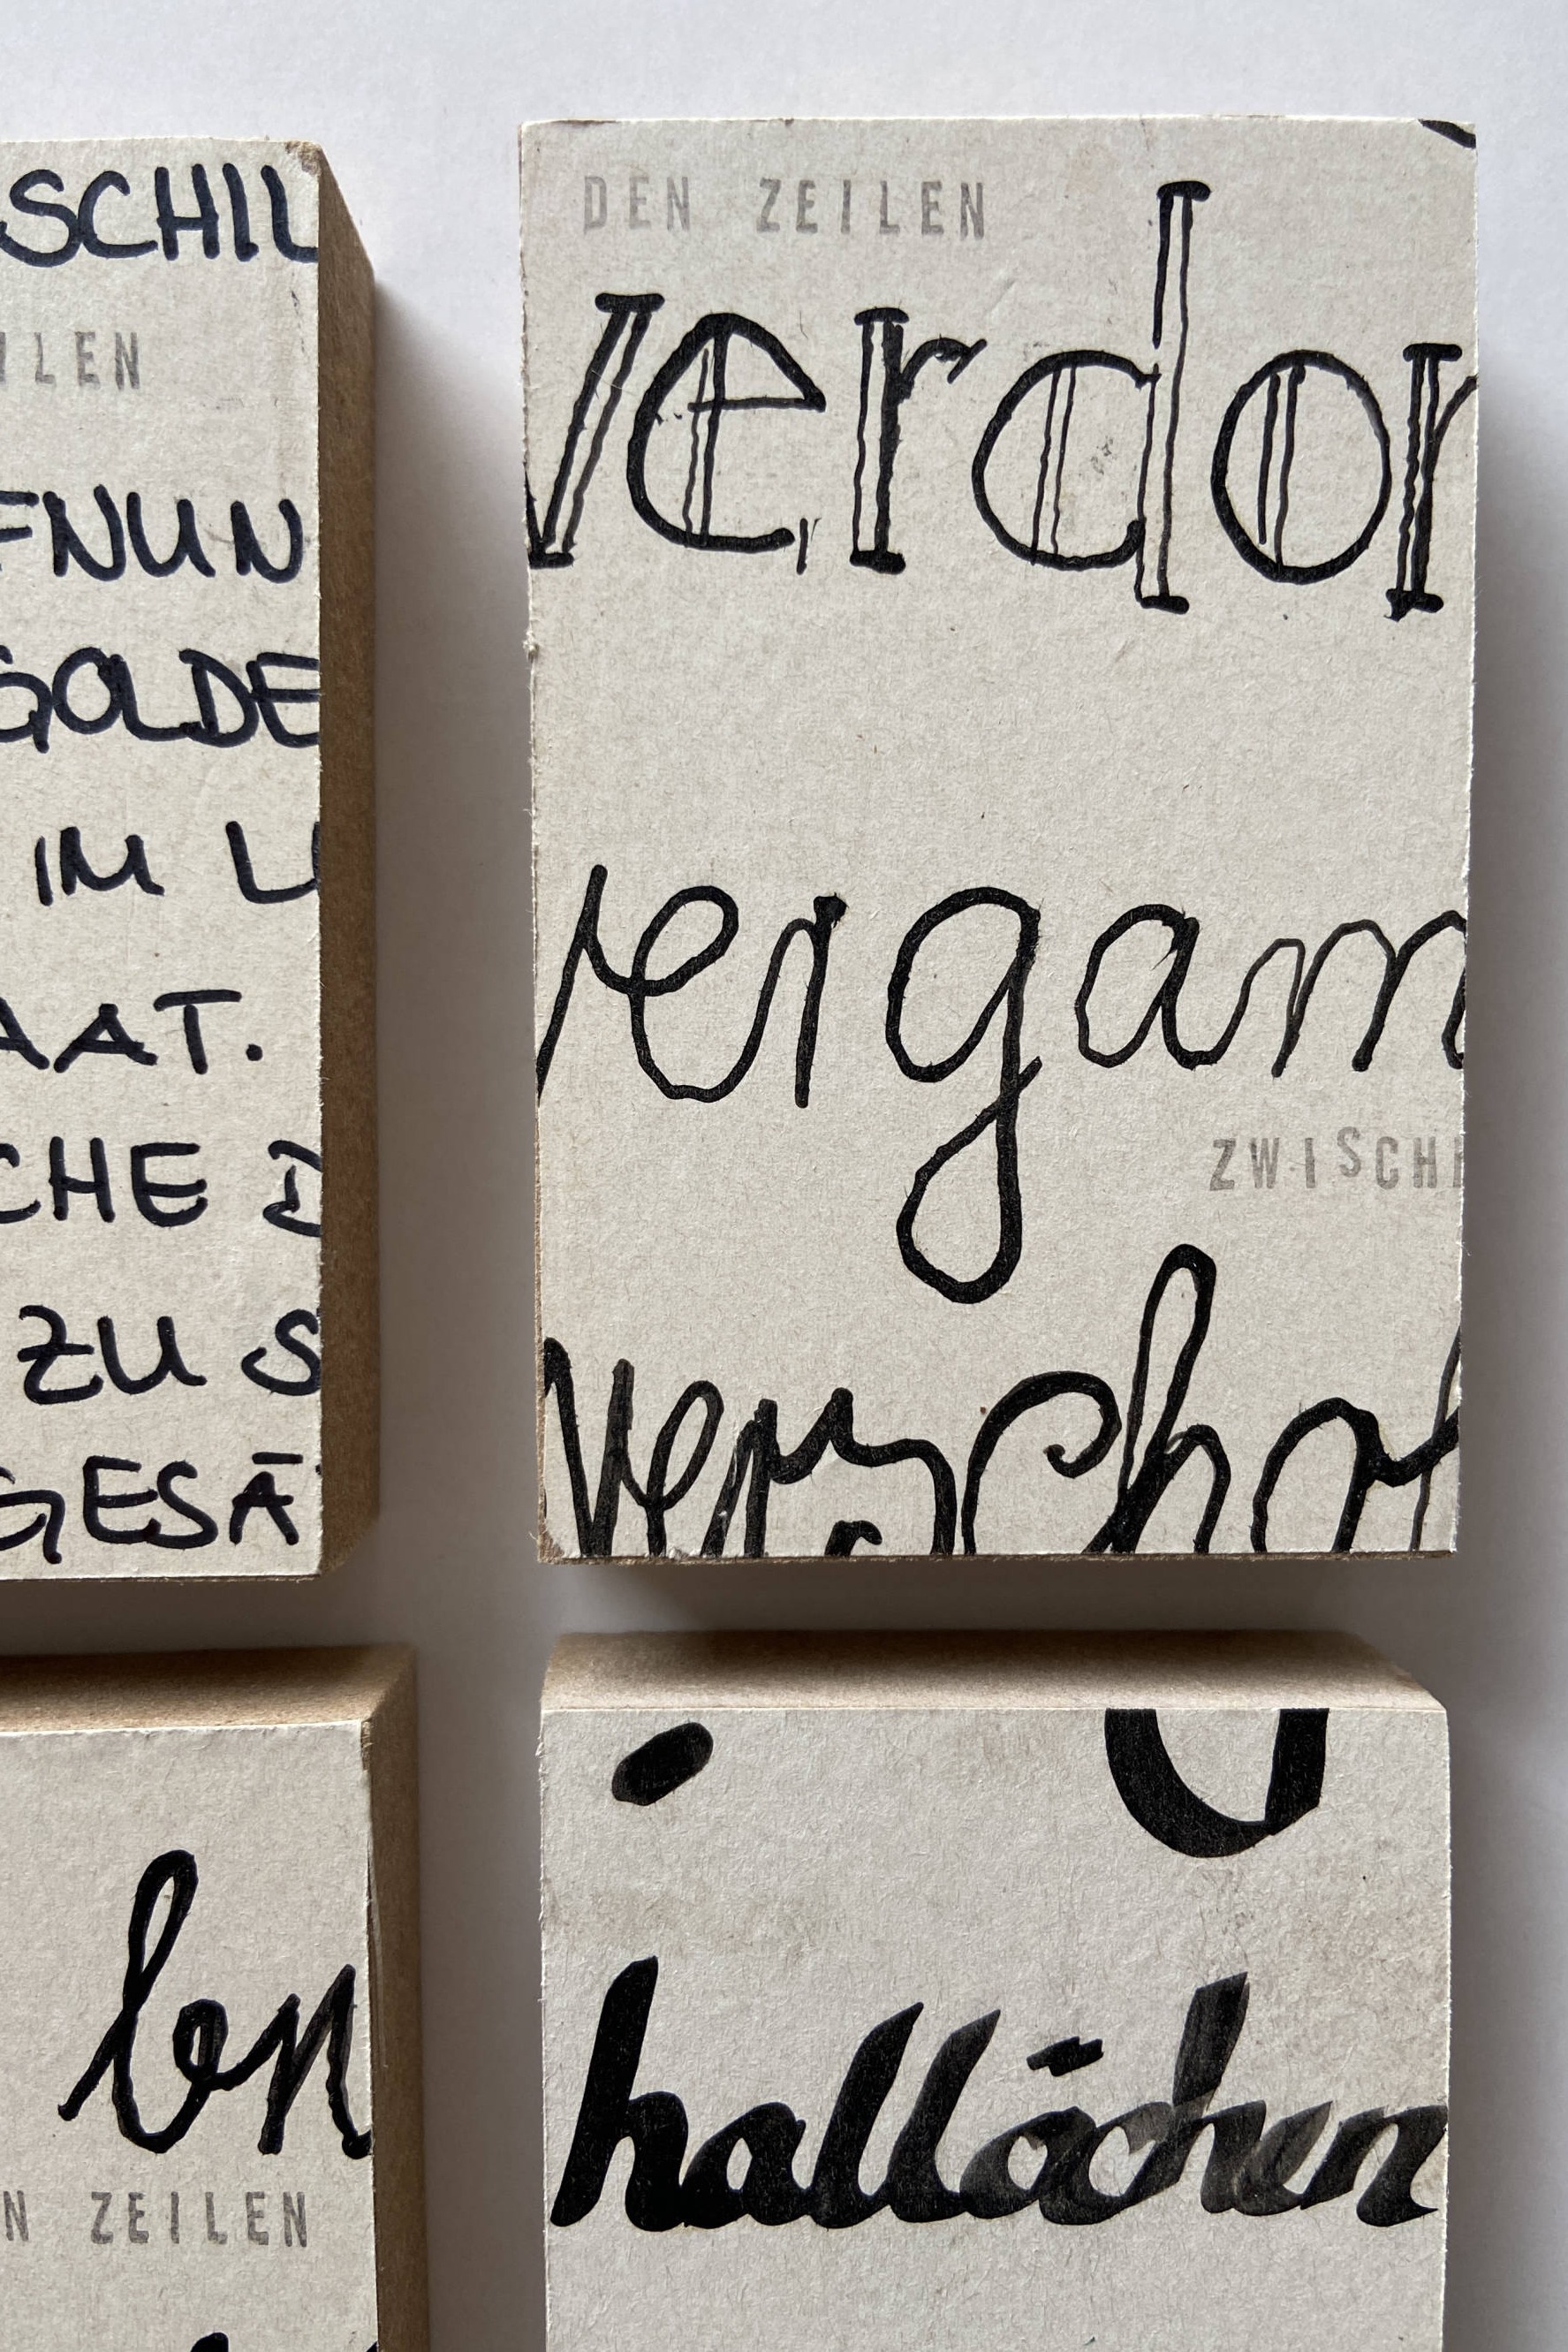 SCHIL
ILEN
FNUN
GOLDE
IM L
AAT.
CHE D
ZU S
GESÄ
DEN ZEILEN
Verdor
vergam
ZWISCHE
verscho
en
N ZEILEN
hallöchen